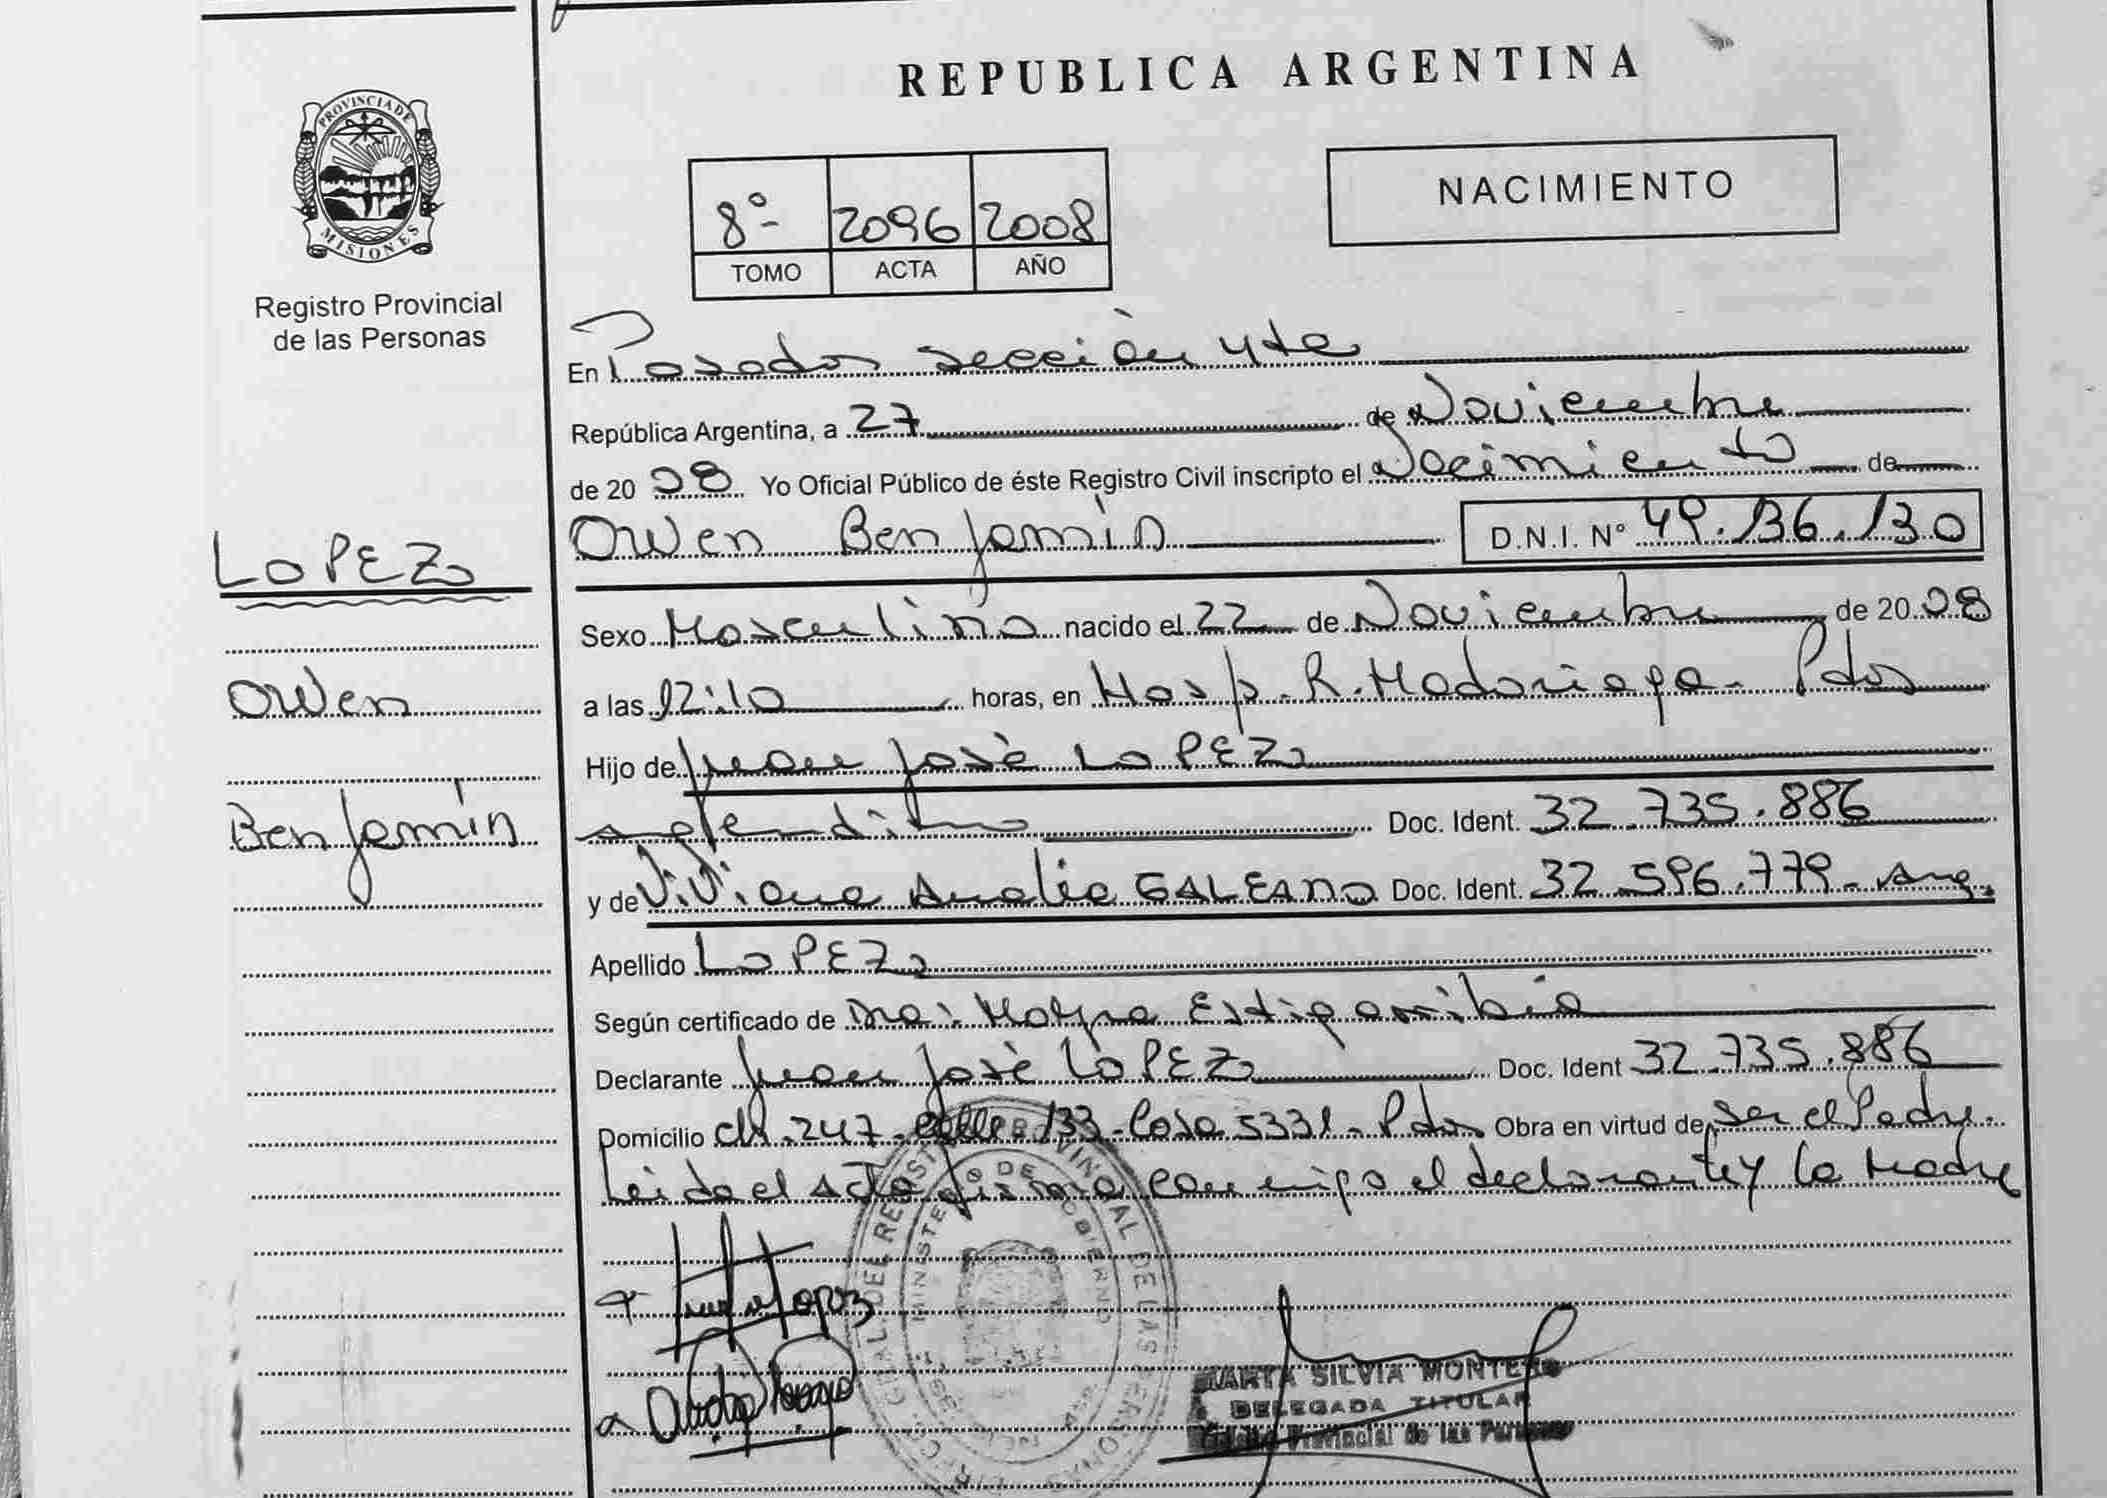 REPUBLICA ARGENTINA
PROVINCIA DE
MISIONES
Registro Provincial
de las Personas
8º 2096 2008
TOMO ACTA AÑO
NACIMIENTO
En Posadas sección 4ta
República Argentina, a 27 de Noviembre
de 2008 Yo Oficial Público de éste Registro Civil inscripto el Nacimiento de
Owen Benjamín D.N.I. Nº 49.136.130
LOPEZ
Owen
Benjamín
Sexo Masculino nacido el 22 de Noviembre de 2008
a las 12:10 horas, en Hosp. R. Madariaga - Pdas
Hijo de Juan José LOPEZ
argentino Doc. Ident. 32.735.886
y de Viviana Analia GALEANO Doc. Ident. 32.596.779 - Arg.
Apellido LOPEZ
Según certificado de Dra: Mayra Estigarribia
Declarante Juan José LOPEZ Doc. Ident 32.735.886
Domicilio Ch. 247 - Calle 133 - Casa 5331 - Pdas Obra en virtud de ser el Padre.
Leida el acta firma conmigo el declarante y la Madre
MARTA SILVIA MONTERO
DELEGADA TITULAR
Provincial de las Personas